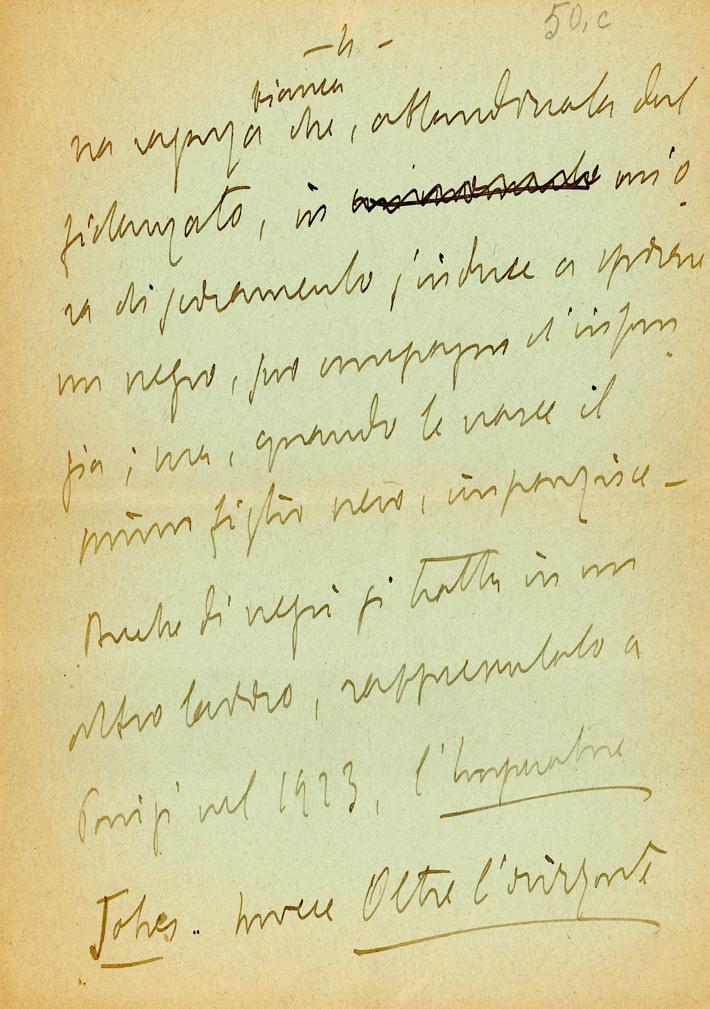 50, c
- 4 -
bianca
na ragazza che, abbandonata dal
fidanzato, in un'o
ra di scoramento s'induce a sposare
un negro, suo compagno d'infan
zia; ma, quando le nasce il
primo figlio nero, impazzisce -
Anche di negri si tratta in un
altro lavoro, rappresentato a
Parigi nel 1923, l'Imperatore
Jones.. Invece Oltre l'orizzonte